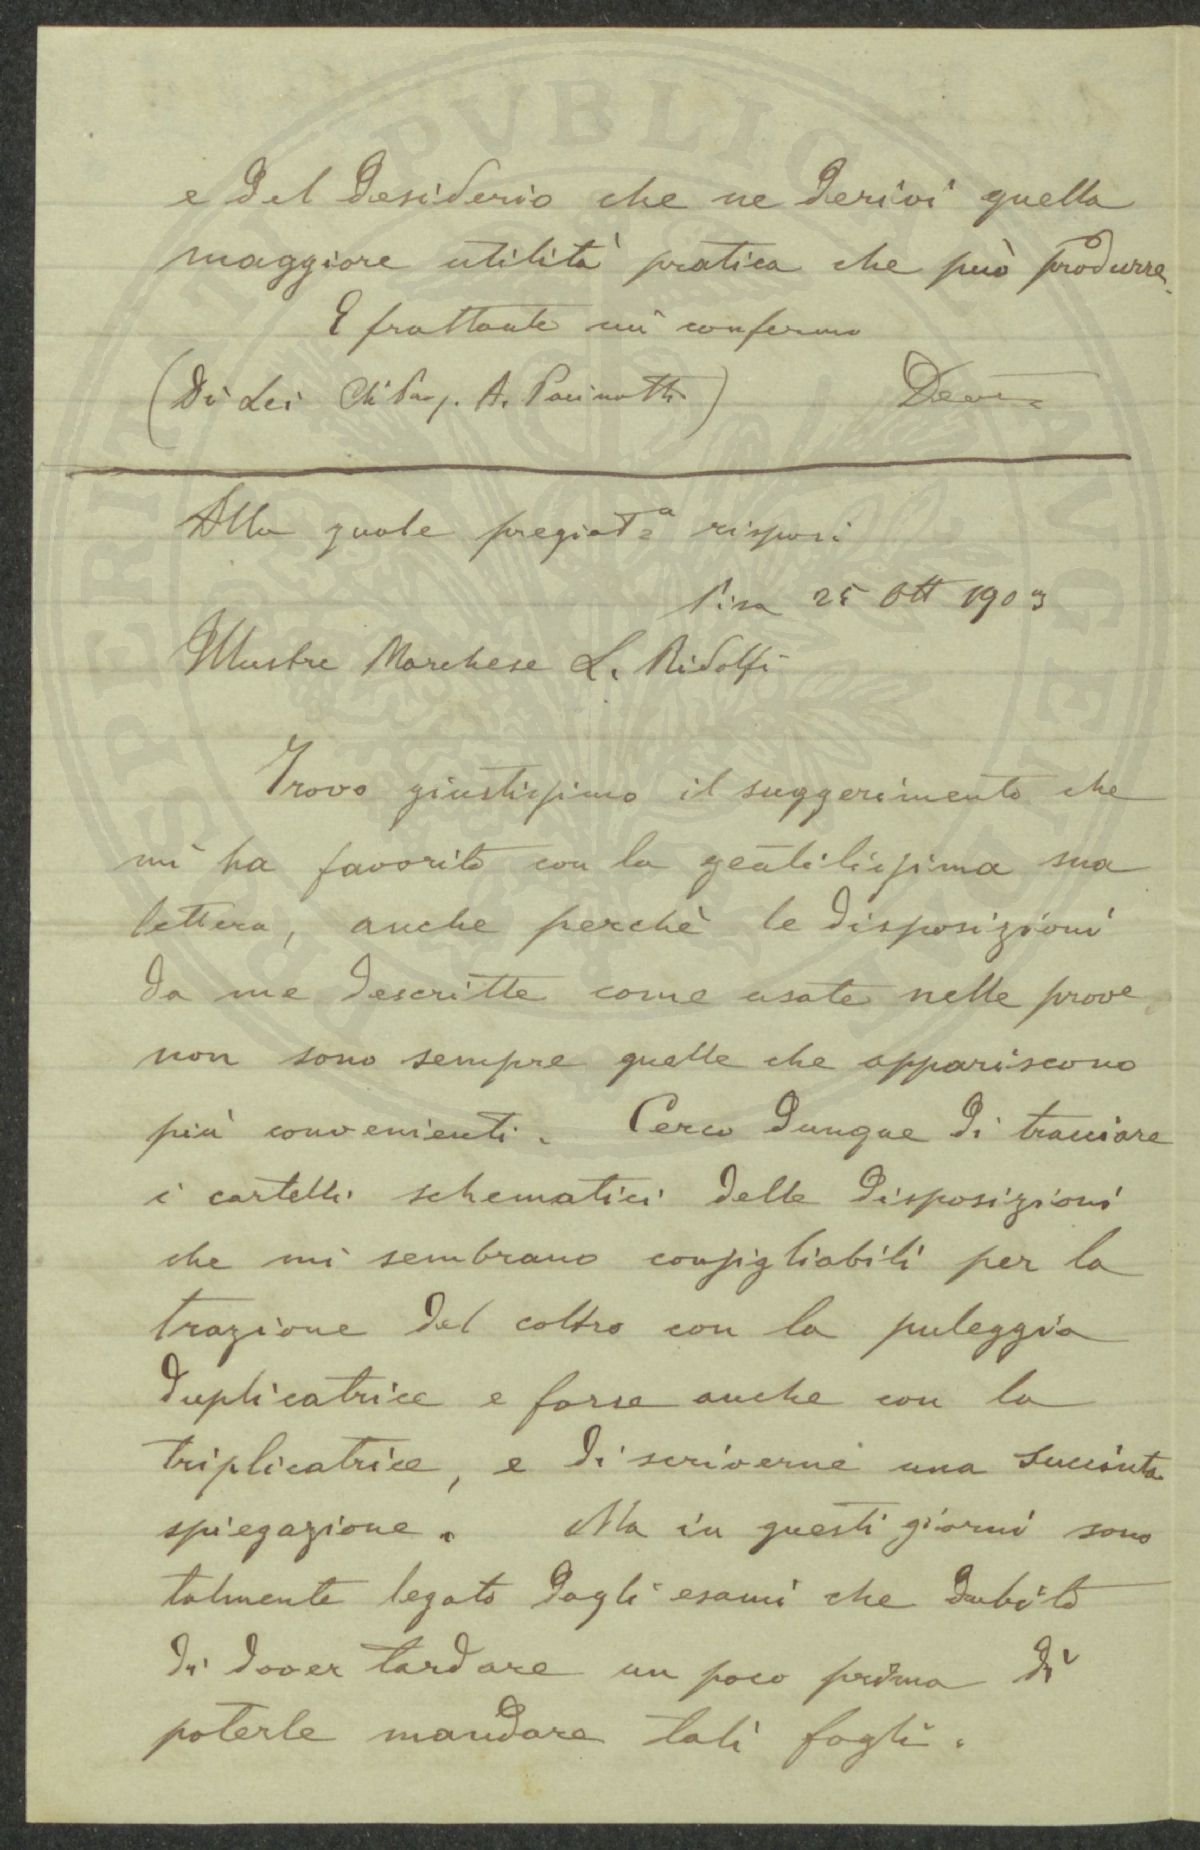 e del desiderio che ne derivi quella
maggiore utilità pratica che può produrre.
E frattanto mi confermo
(Di Lei Ch. Prof. A. Pacinotti) Dev.
Alla quale pregiat.a risposi
Pisa 25 Ott 1903
Illustre Marchese L. Ridolfi
Trovo giustissimo il suggerimento che
mi ha favorito con la gentilissima sua
lettera, anche perchè le disposizioni
da me descritte come usate nelle prove
non sono sempre quelle che appariscono
più convenienti. Cerco dunque di tracciare
i cartelli schematici delle disposizioni
che mi sembrano consigliabili per la
trazione del coltro con la puleggia
duplicatrice e forse anche con la
triplicatrice, e di scriverne una succinta
spiegazione. Ma in questi giorni sono
talmente legato dagli esami che dubito
di dover tardare un poco prima di
poterle mandare tali fogli.